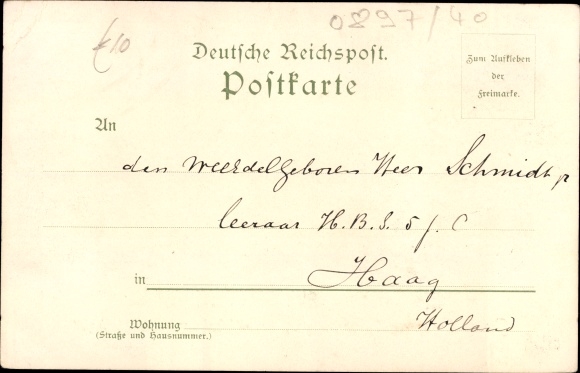 0897/40
€10
Deutsche Reichspost.
Postkarte
Zum Aufkleben
der
Freimarke.
An
den Weledelgeboren Heer Schmidt jr
leeraar H.B.S. 5 j. C
in Haag
Holland
Wohnung
(Straße und Hausnummer.)